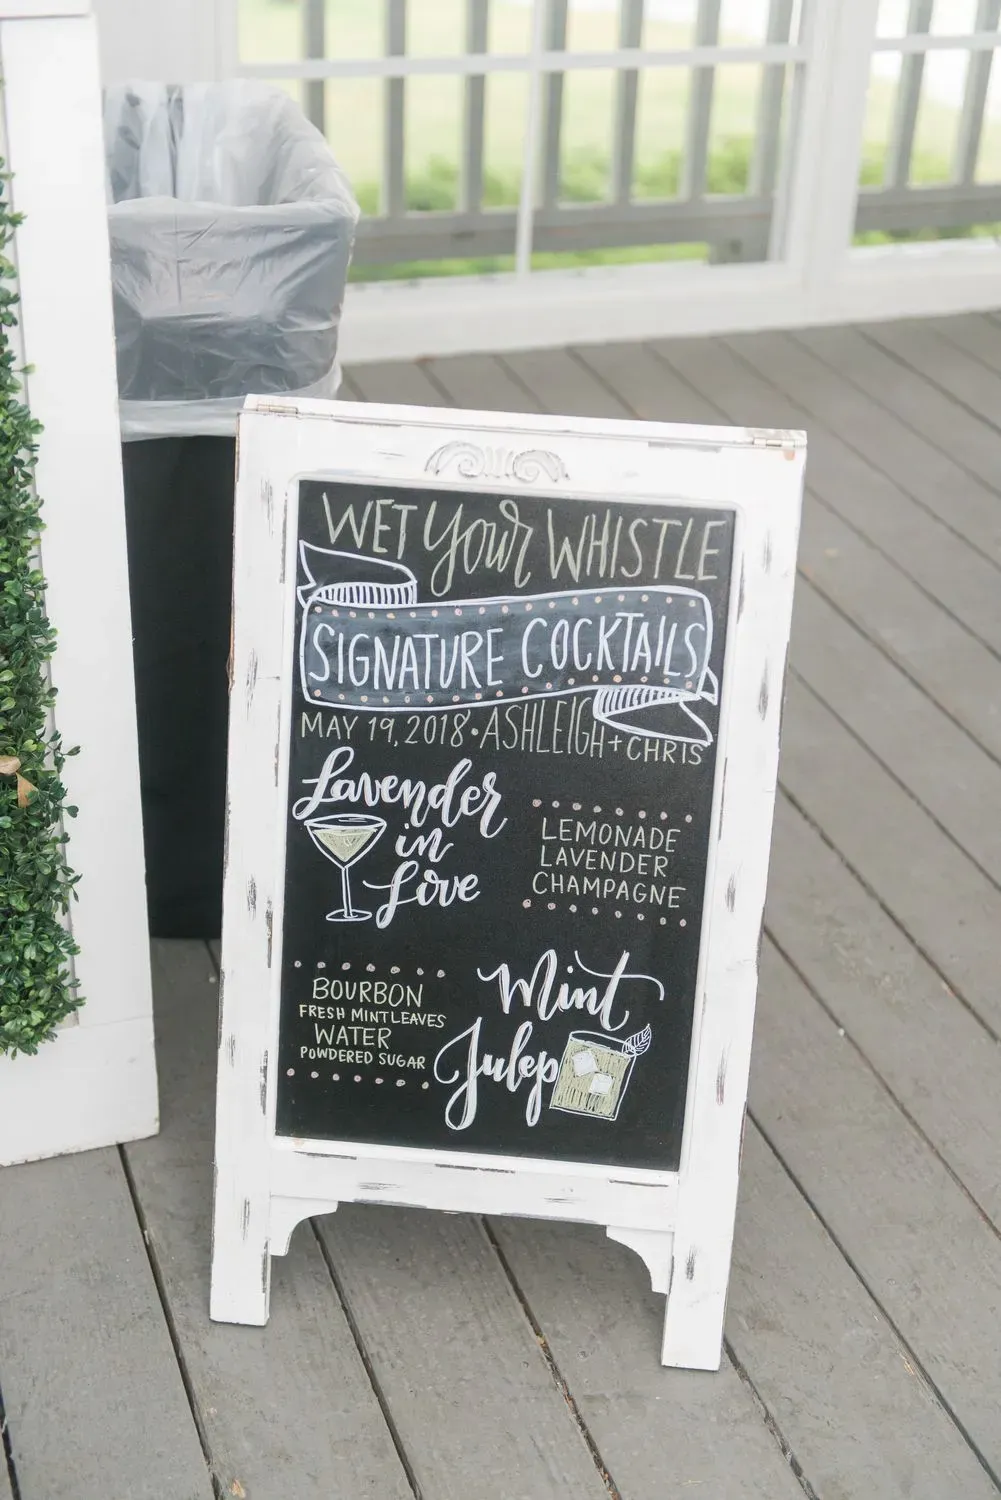 WET your WHISTLE
SIGNATURE COCKTAILS
MAY 19, 2018 • ASHLEIGH + CHRIS
Lavender
in
Love
LEMONADE
LAVENDER
CHAMPAGNE
Mint
Julep
BOURBON
FRESH MINT LEAVES
WATER
POWDERED SUGAR